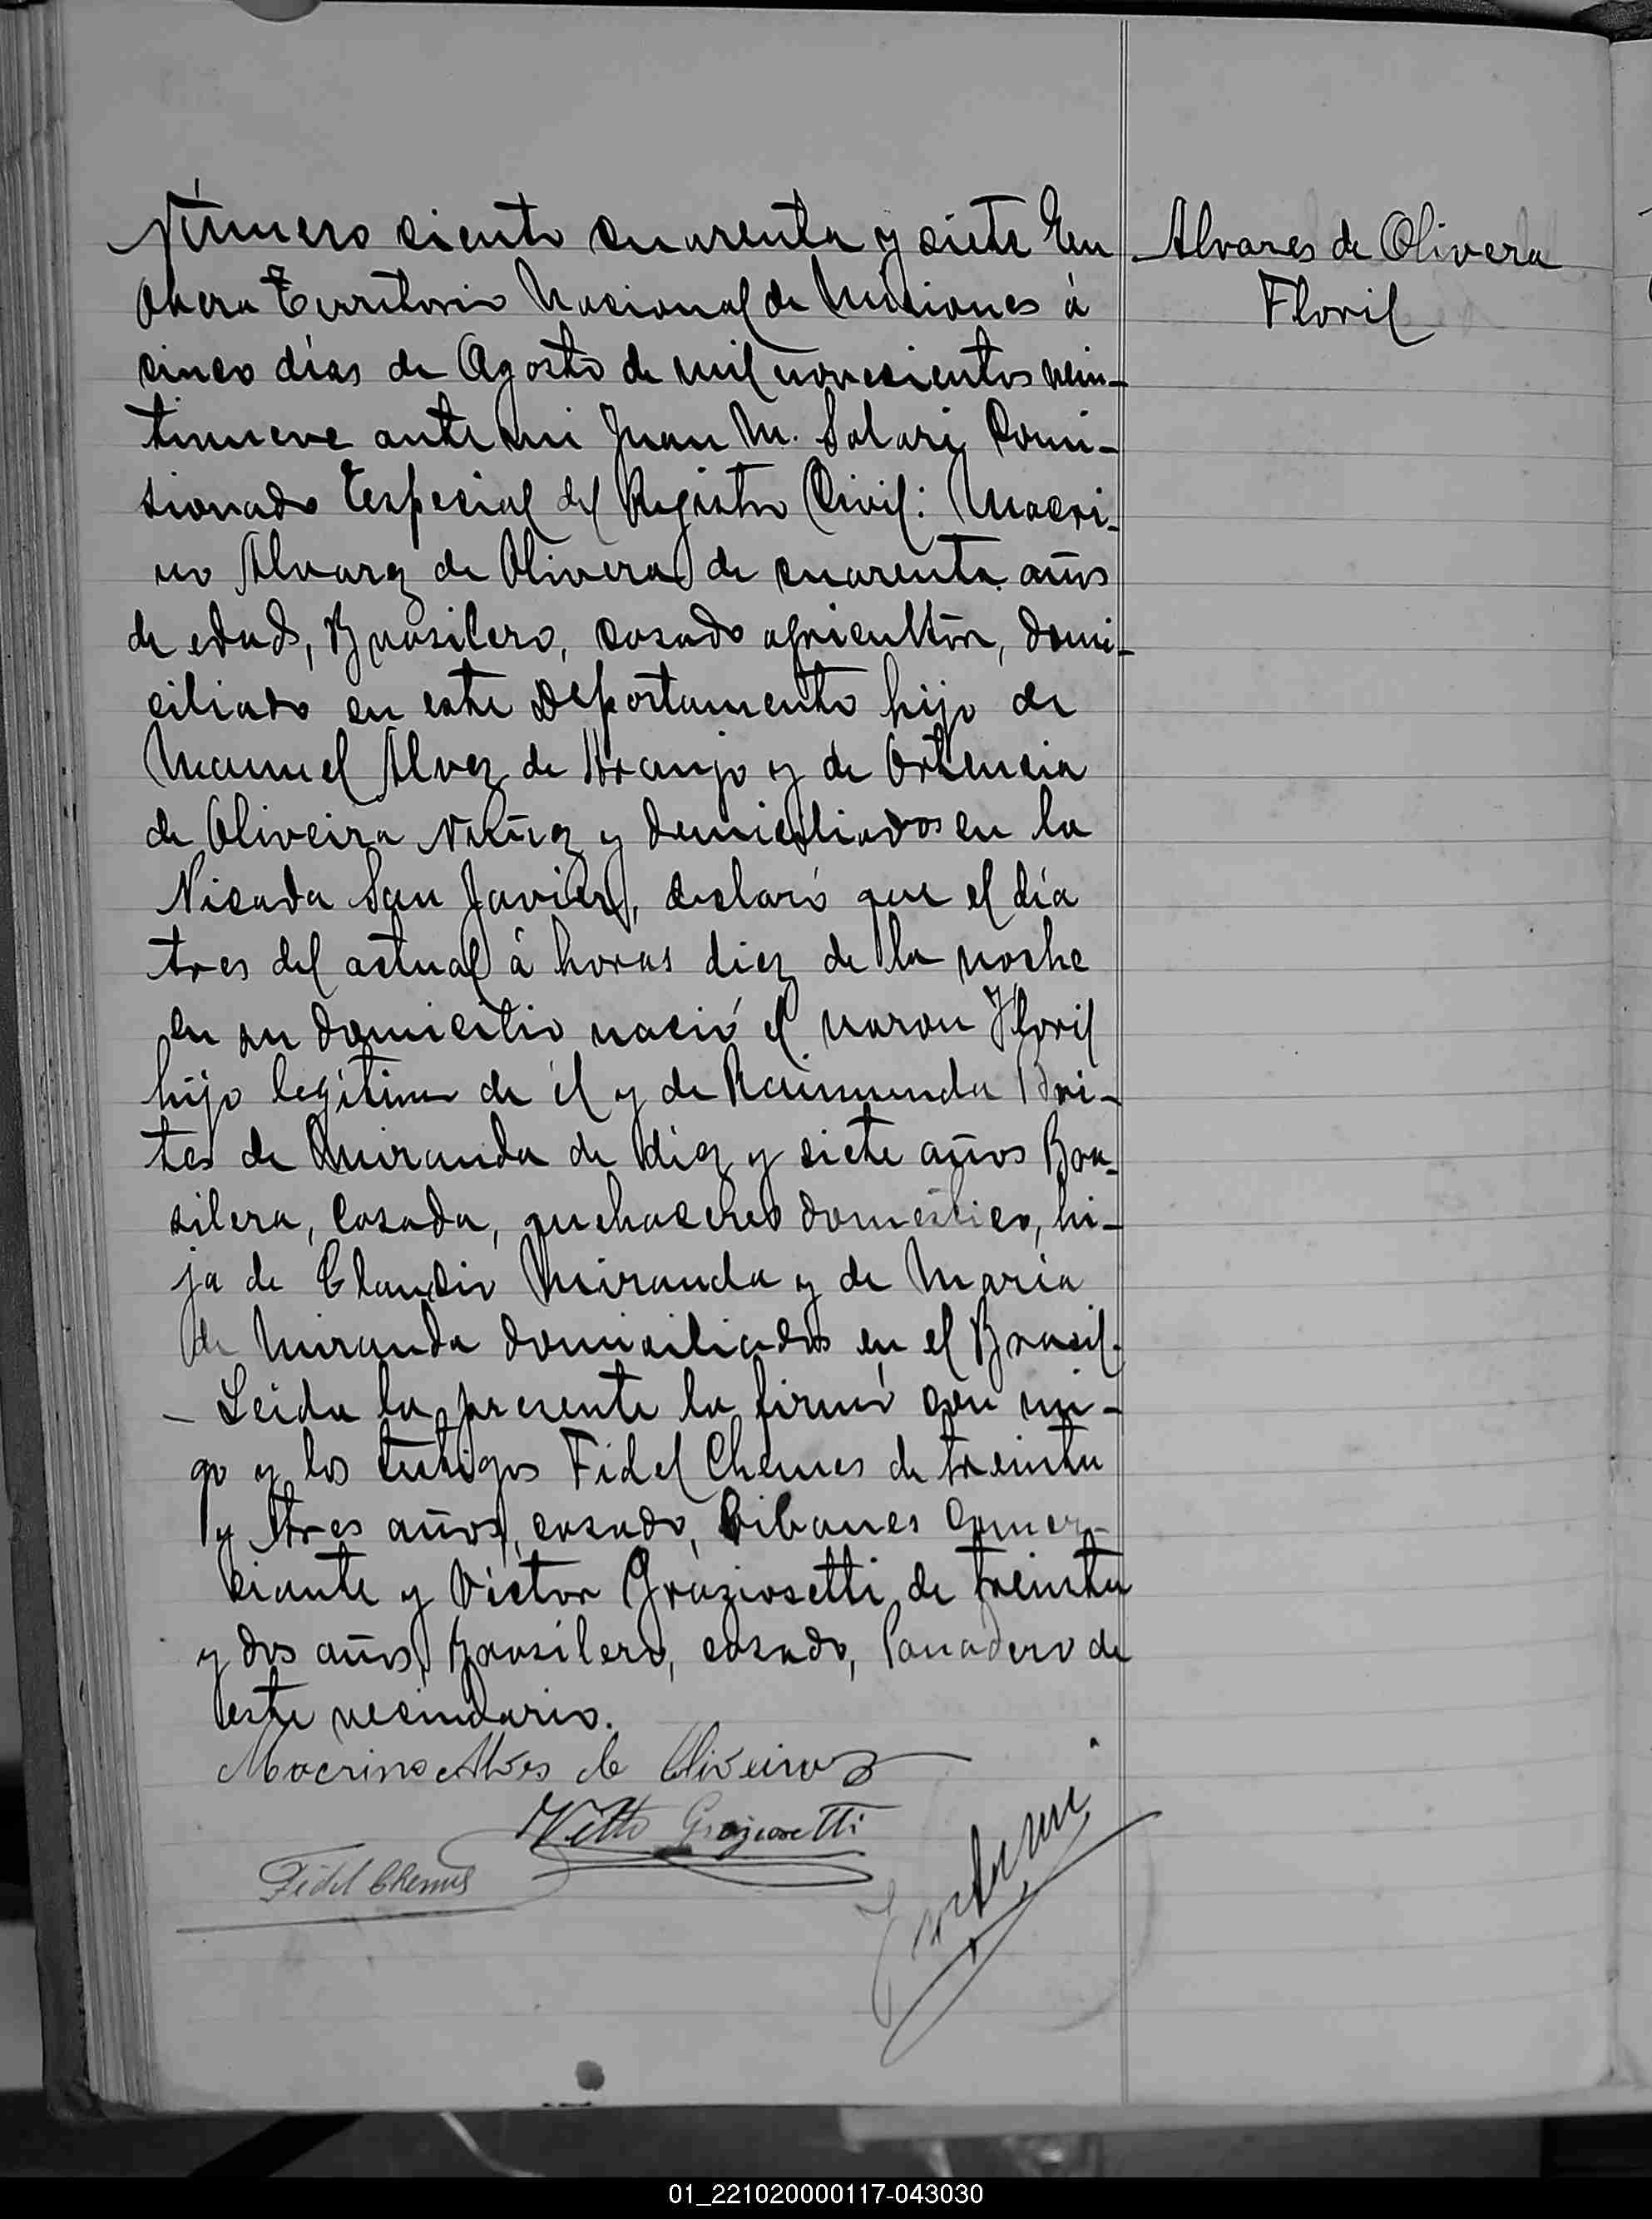 Número ciento cuarenta y siete En
Obera Territorio Nacional de Misiones á
cinco días de Agosto de mil novecientos vein-
tinueve ante mi Juan M. Salari Comi-
sionado Especial del Registro Civil: Macri-
no Alvarez de Olivera de cuarenta años
de edad, Brasilero, casado agricultor, domi-
ciliado en este Departamento hijo de
Manuel Alvez de Araujo y de Ortencia
de Oliveira Nuñez y domiciliados en la
Picada San Javier, declaró que el día
tres del actual á horas diez de la noche
en su domicilio nació el varon Floril
hijo legitimo de él y de Raimunda Bri-
tes de Miranda de diez y siete años Bra-
silera, Casada, quehaceres domestico, hi-
ja de Claudio Miranda y de María
de Miranda domiciliados en el Brasil.
- Leida la presente la firmó con mi-
go y los testigos Fidel Chemes de treinta
y tres años, casado, Libanes Comer-
ciante y Victor Graziosetti de treinta
y dos años Brasilero, casado, Panadero de
este vecindario.
Macrino Alves de Oliveira
Graziosetti
Fidel Chemes
Alvares de Olivera
Floril
01_221020000117-043030